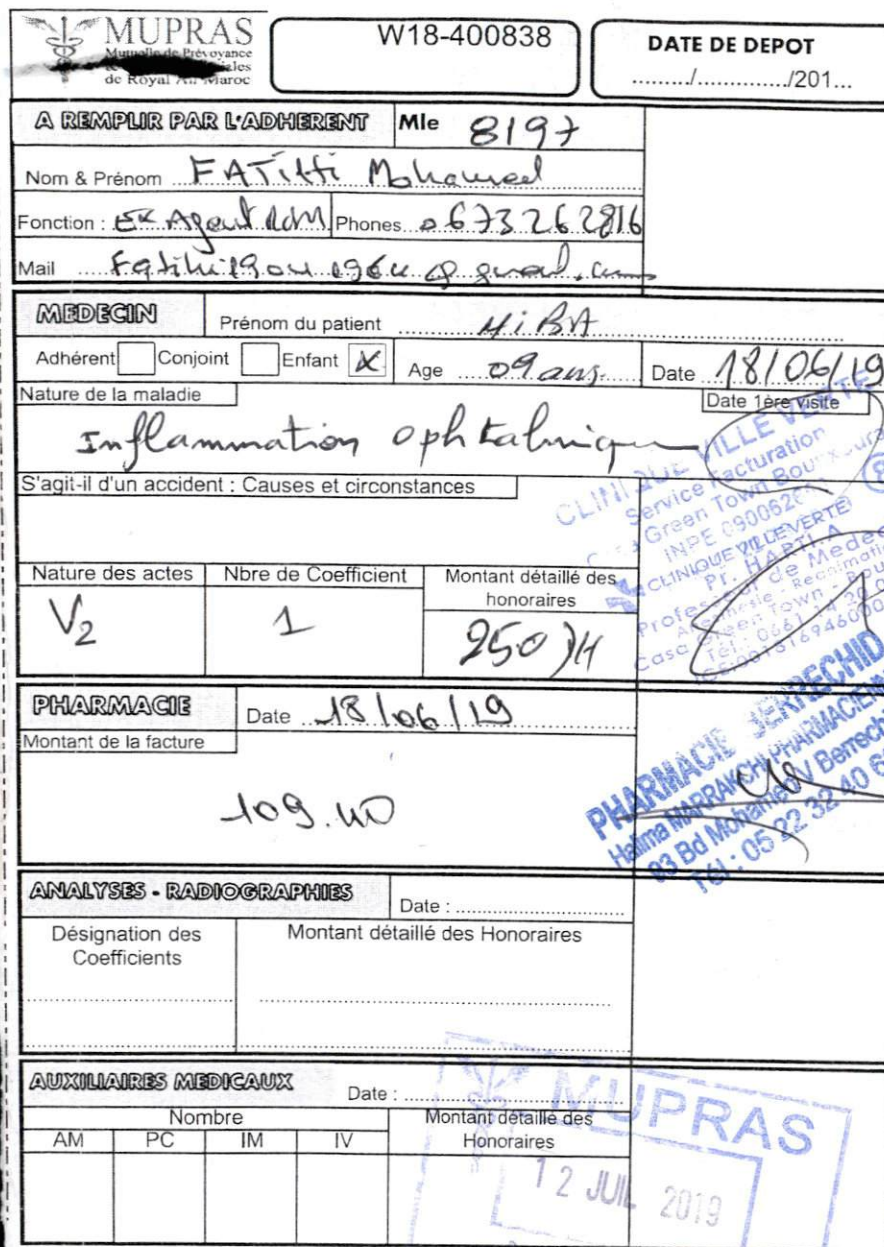 MUPRAS
Mutuelle de Prévoyance
de Royal Air Maroc
W18-400838
DATE DE DEPOT
........./.............../201...
A REMPLIR PAR L'ADHERENT Mle 8197
Nom & Prénom FATihi Mohamed
Fonction : Ex Agent RAM Phones 0673262816
Mail
MEDECIN Prénom du patient HiBA
Adhérent Conjoint Enfant X Age 09 ans Date 18/06/19
Nature de la maladie Date 1ère visite
Inflammation ophtalmique
S'agit-il d'un accident : Causes et circonstances
CLINIQUE VILLE VERTE
Service Facturation
Green Town
CLINIQUE VILLE VERTE
Pr. HARTI A
Nature des actes Nbre de Coefficient Montant détaillé des honoraires
V2 1 250 DH
PHARMACIE Date 18/06/19
Montant de la facture
109.40
PHARMACIE BERRECHID
Halima MARRAKCHI PHARMACIENNE
93 Bd Mohamed V Berrech
Tél : 05 22 32 40 6
ANALYSES - RADIOGRAPHIES Date :
Désignation des Coefficients Montant détaillé des Honoraires
AUXILIAIRES MEDICAUX Date :
Nombre Montant détaillé des Honoraires
AM PC IM IV
MUPRAS
12 JUIL 2019